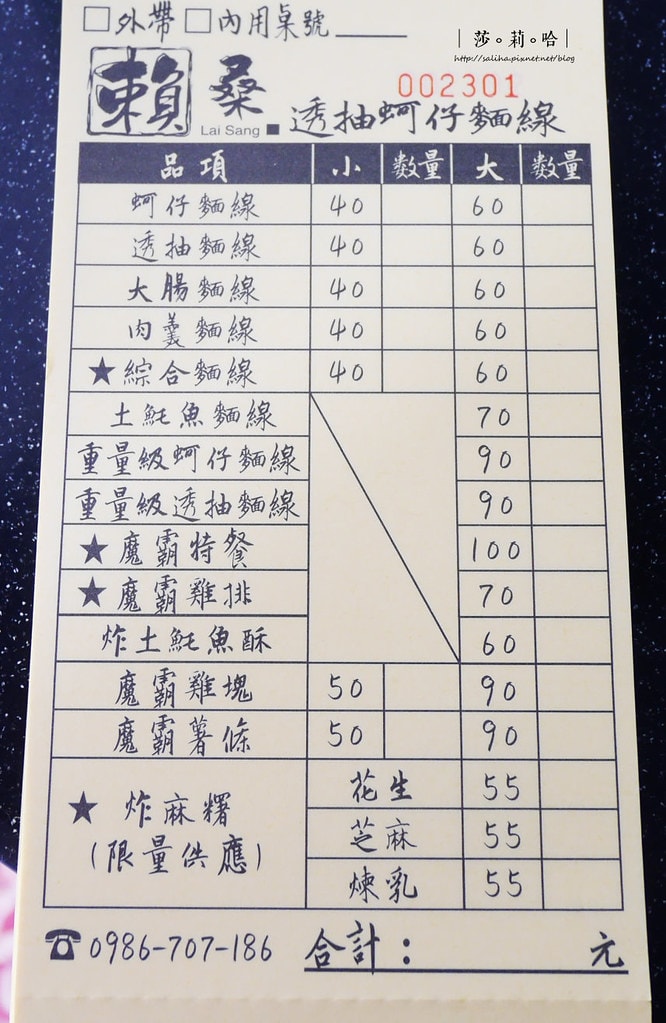 □外帶 □內用桌號____
|莎。莉。哈|
http://saliha.pixnet.net/blog
賴桑 Lai Sang ■ 透抽蚵仔麵線
002301
品項 小 數量 大 數量
蚵仔麵線 40 60
透抽麵線 40 60
大腸麵線 40 60
肉羹麵線 40 60
★綜合麵線 40 60
土魠魚麵線 70
重量級蚵仔麵線 90
重量級透抽麵線 90
★魔霸特餐 100
★魔霸雞排 70
炸土魠魚酥 60
魔霸雞塊 50 90
魔霸薯條 50 90
★炸麻糬
(限量供應)
花生 55
芝麻 55
煉乳 55
☎0986-707-186 合計：　元